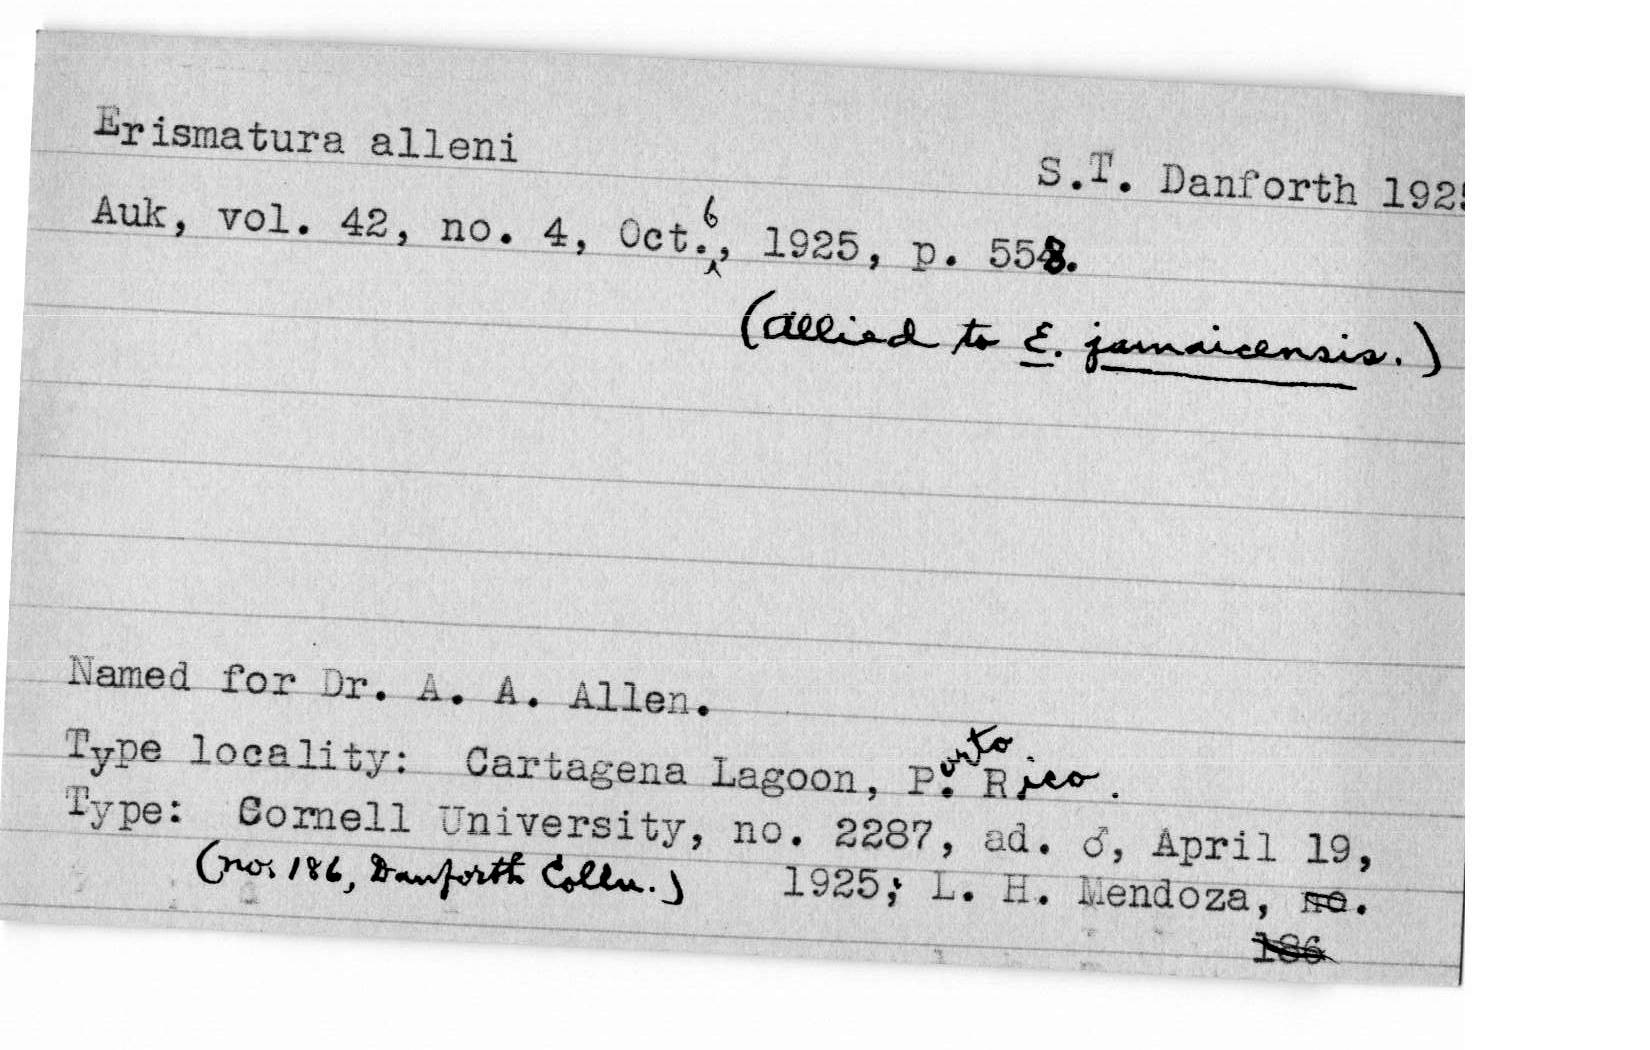 Erismatura alleni
S.T. Danforth 1925
Auk, vol. 42, no. 4, Oct. 6, 1925, p. 558.
(allied to E. jamaicensis.)
Named for Dr. A. A. Allen.
Type locality: Cartagena Lagoon, Porto Rico.
Type: Cornell University, no. 2287, ad. ♂, April 19,
(no. 186, Danforth Colln.) 1925; L. H. Mendoza, no.
186